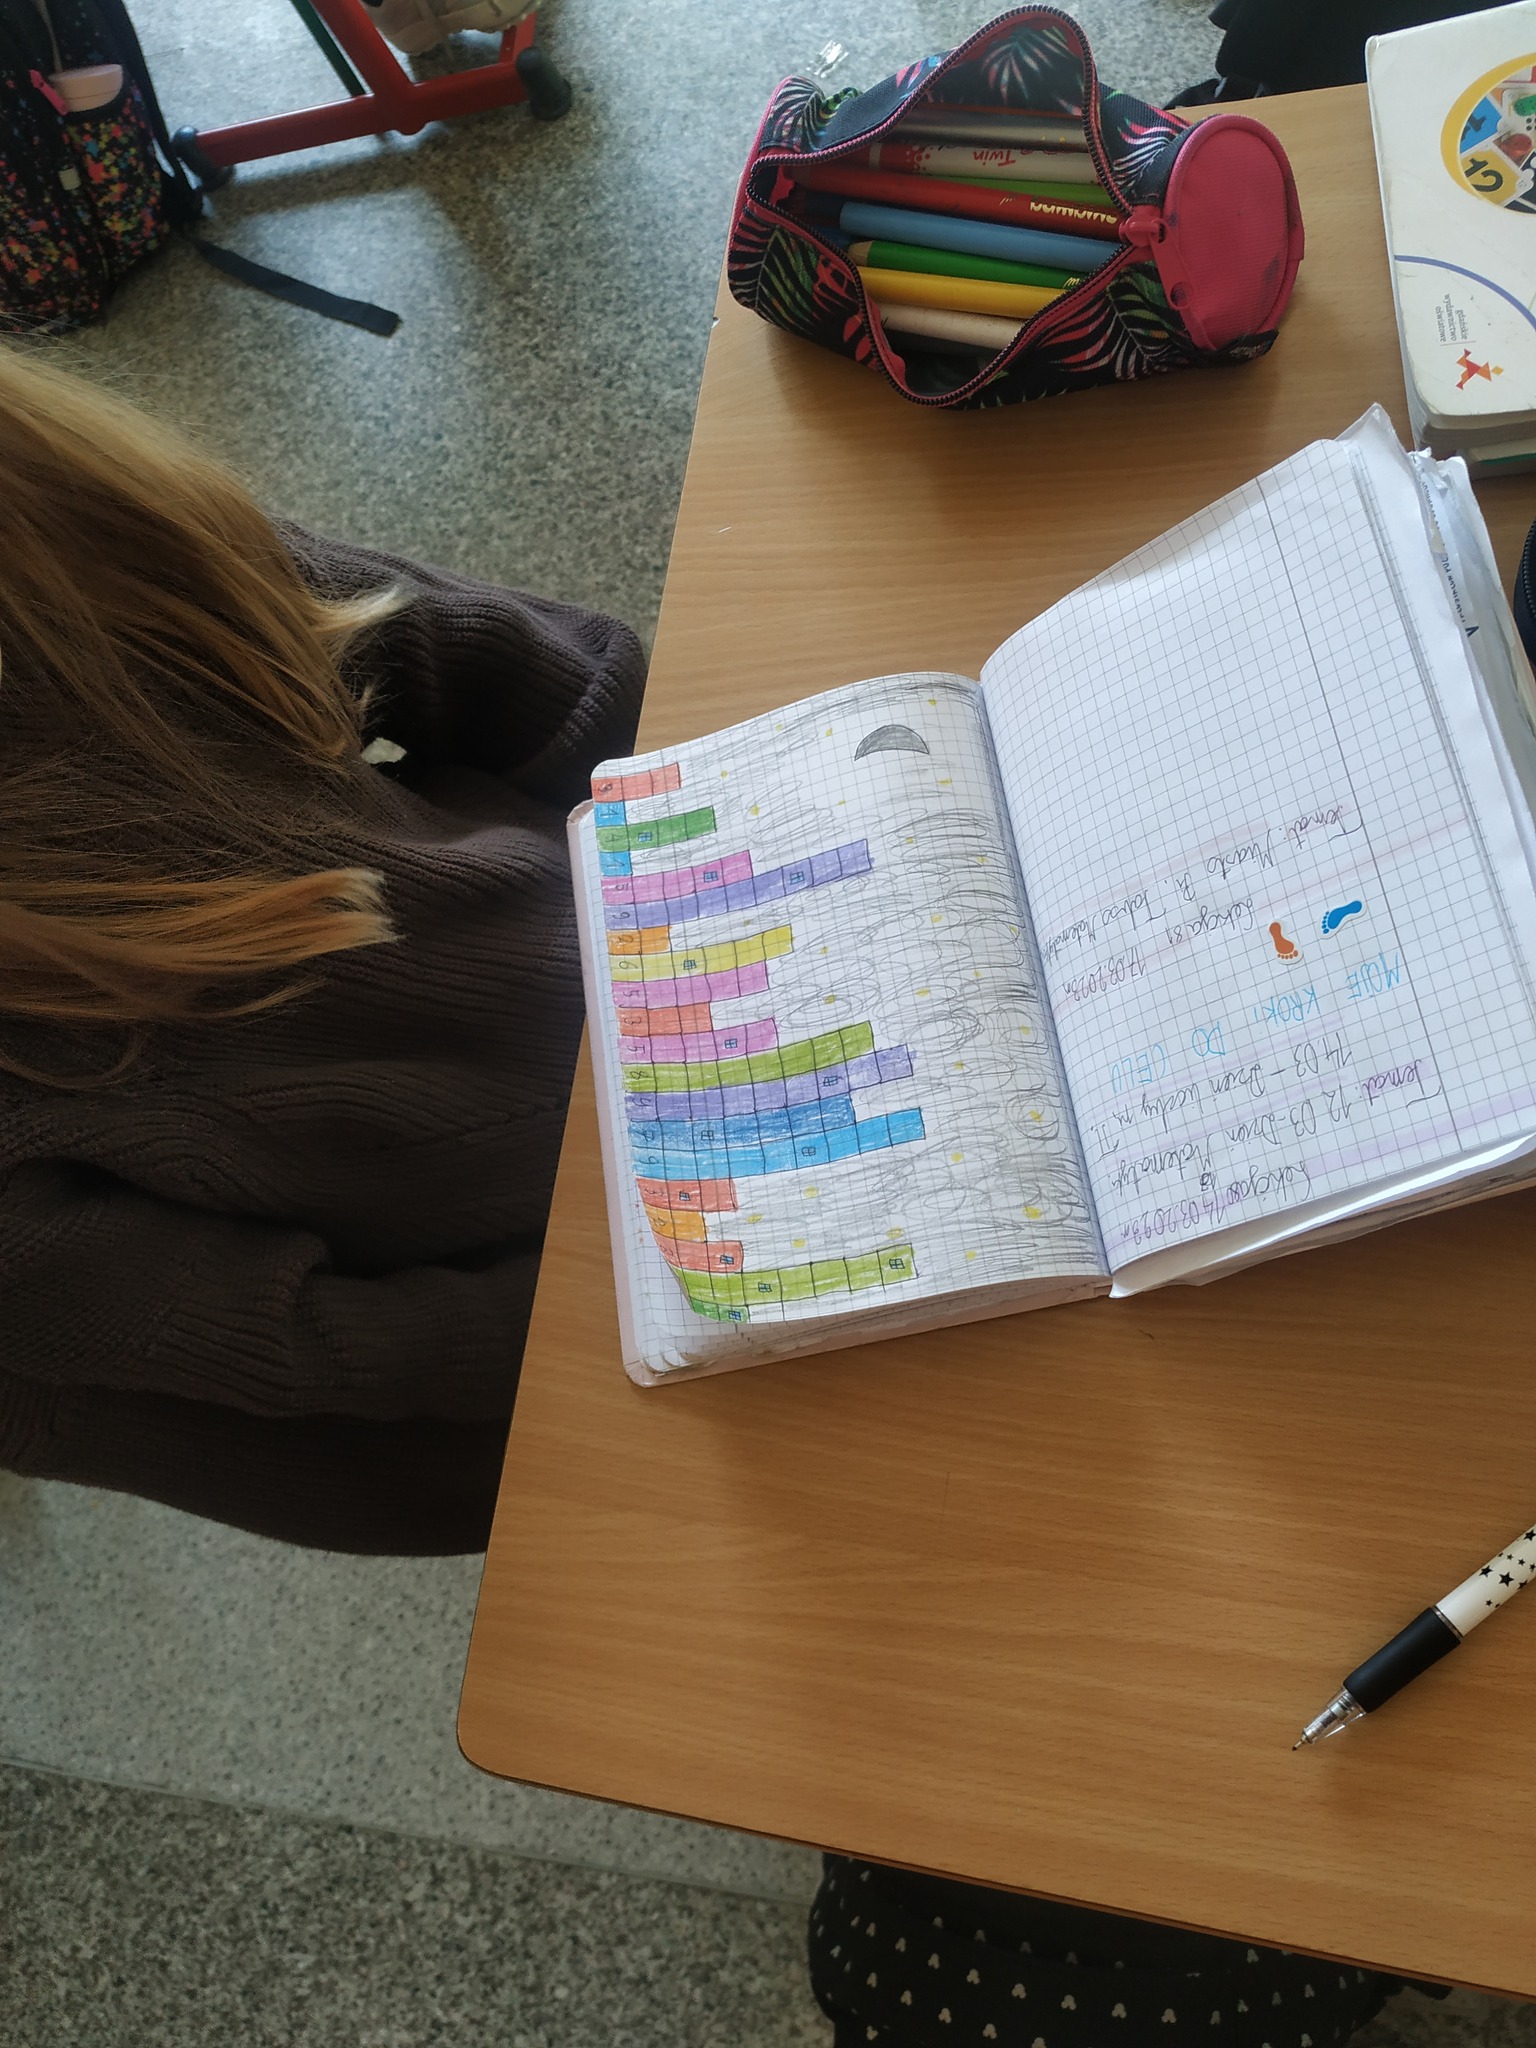 Lekcja 80 14.03.2023r.
Temat: 12.03 - Dzień Matematyki
14.03 - Dzień Liczby π
MOJE KROKI DO CELU
Lekcja 81 17.03.2023r.
Temat: Miasto
3 1 4 1 5 9 2 6 5 3 5 8 9 7 9 3 2
Twin
BAMBINO
12
gdańskie
wydawnictwo
oświatowe